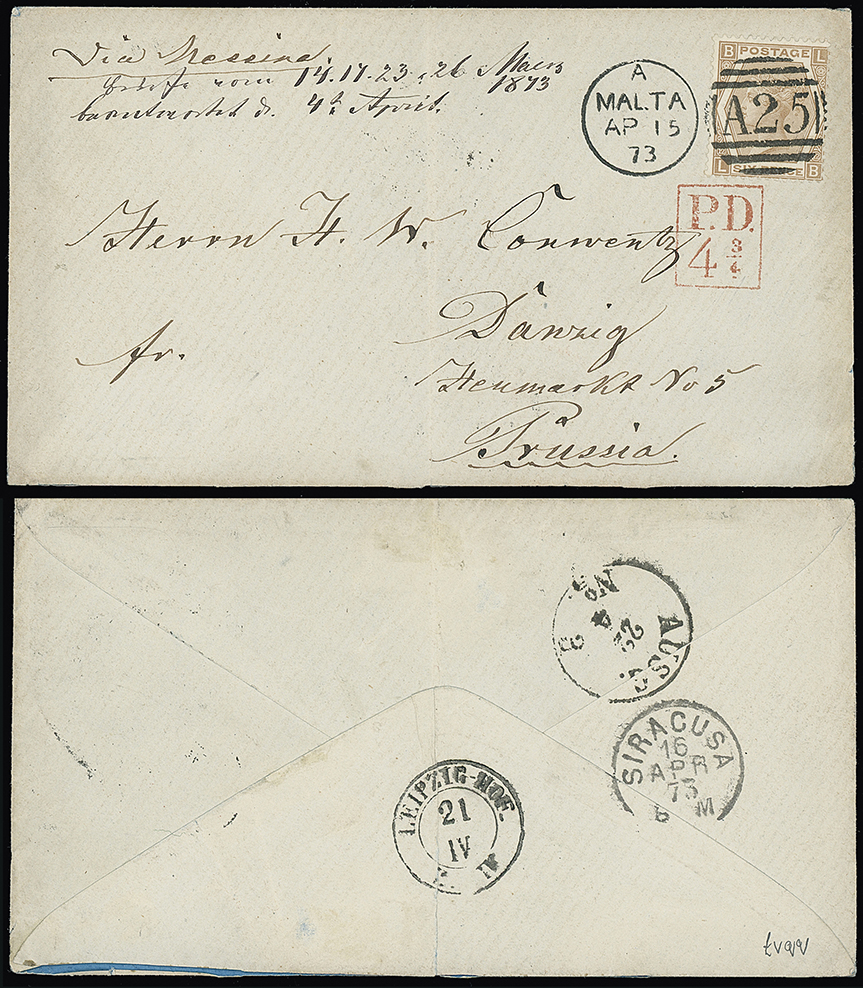 Via Messina.
Briefe vom 14. 17. 23. 26 Maerz
1873
beantwortet d. 4t April.
A
MALTA
AP 15
73
B POSTAGE L
A25
L SIX PENCE B
P.D.
4 3/4
Herrn H. W. Conwentz
Danzig
fr.
Heumarkt No 5
Prussia.
AUSG.
22
4
No
SIRACUSA
16
APR
73
M
LEIPZIG-HOF.
21
IV